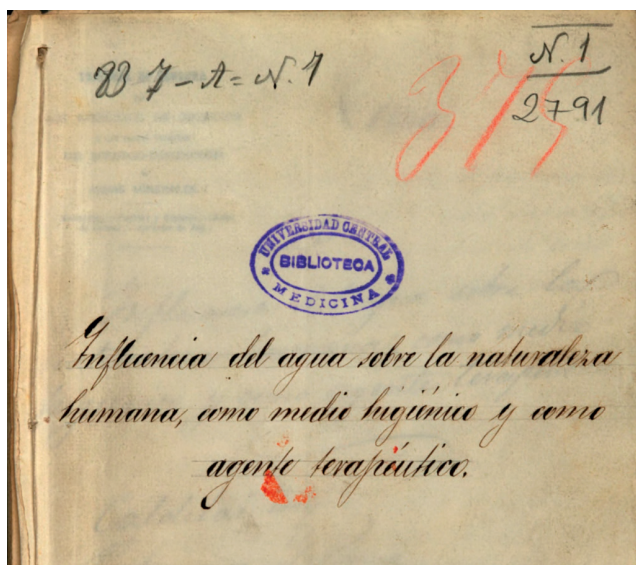 83 7-A=N.1
N. 1
2791
375
UNIVERSIDAD CENTRAL
BIBLIOTECA
MEDICINA
Influencia del agua sobre la naturaleza
humana, como medio higiénico y como
agente terapéutico.